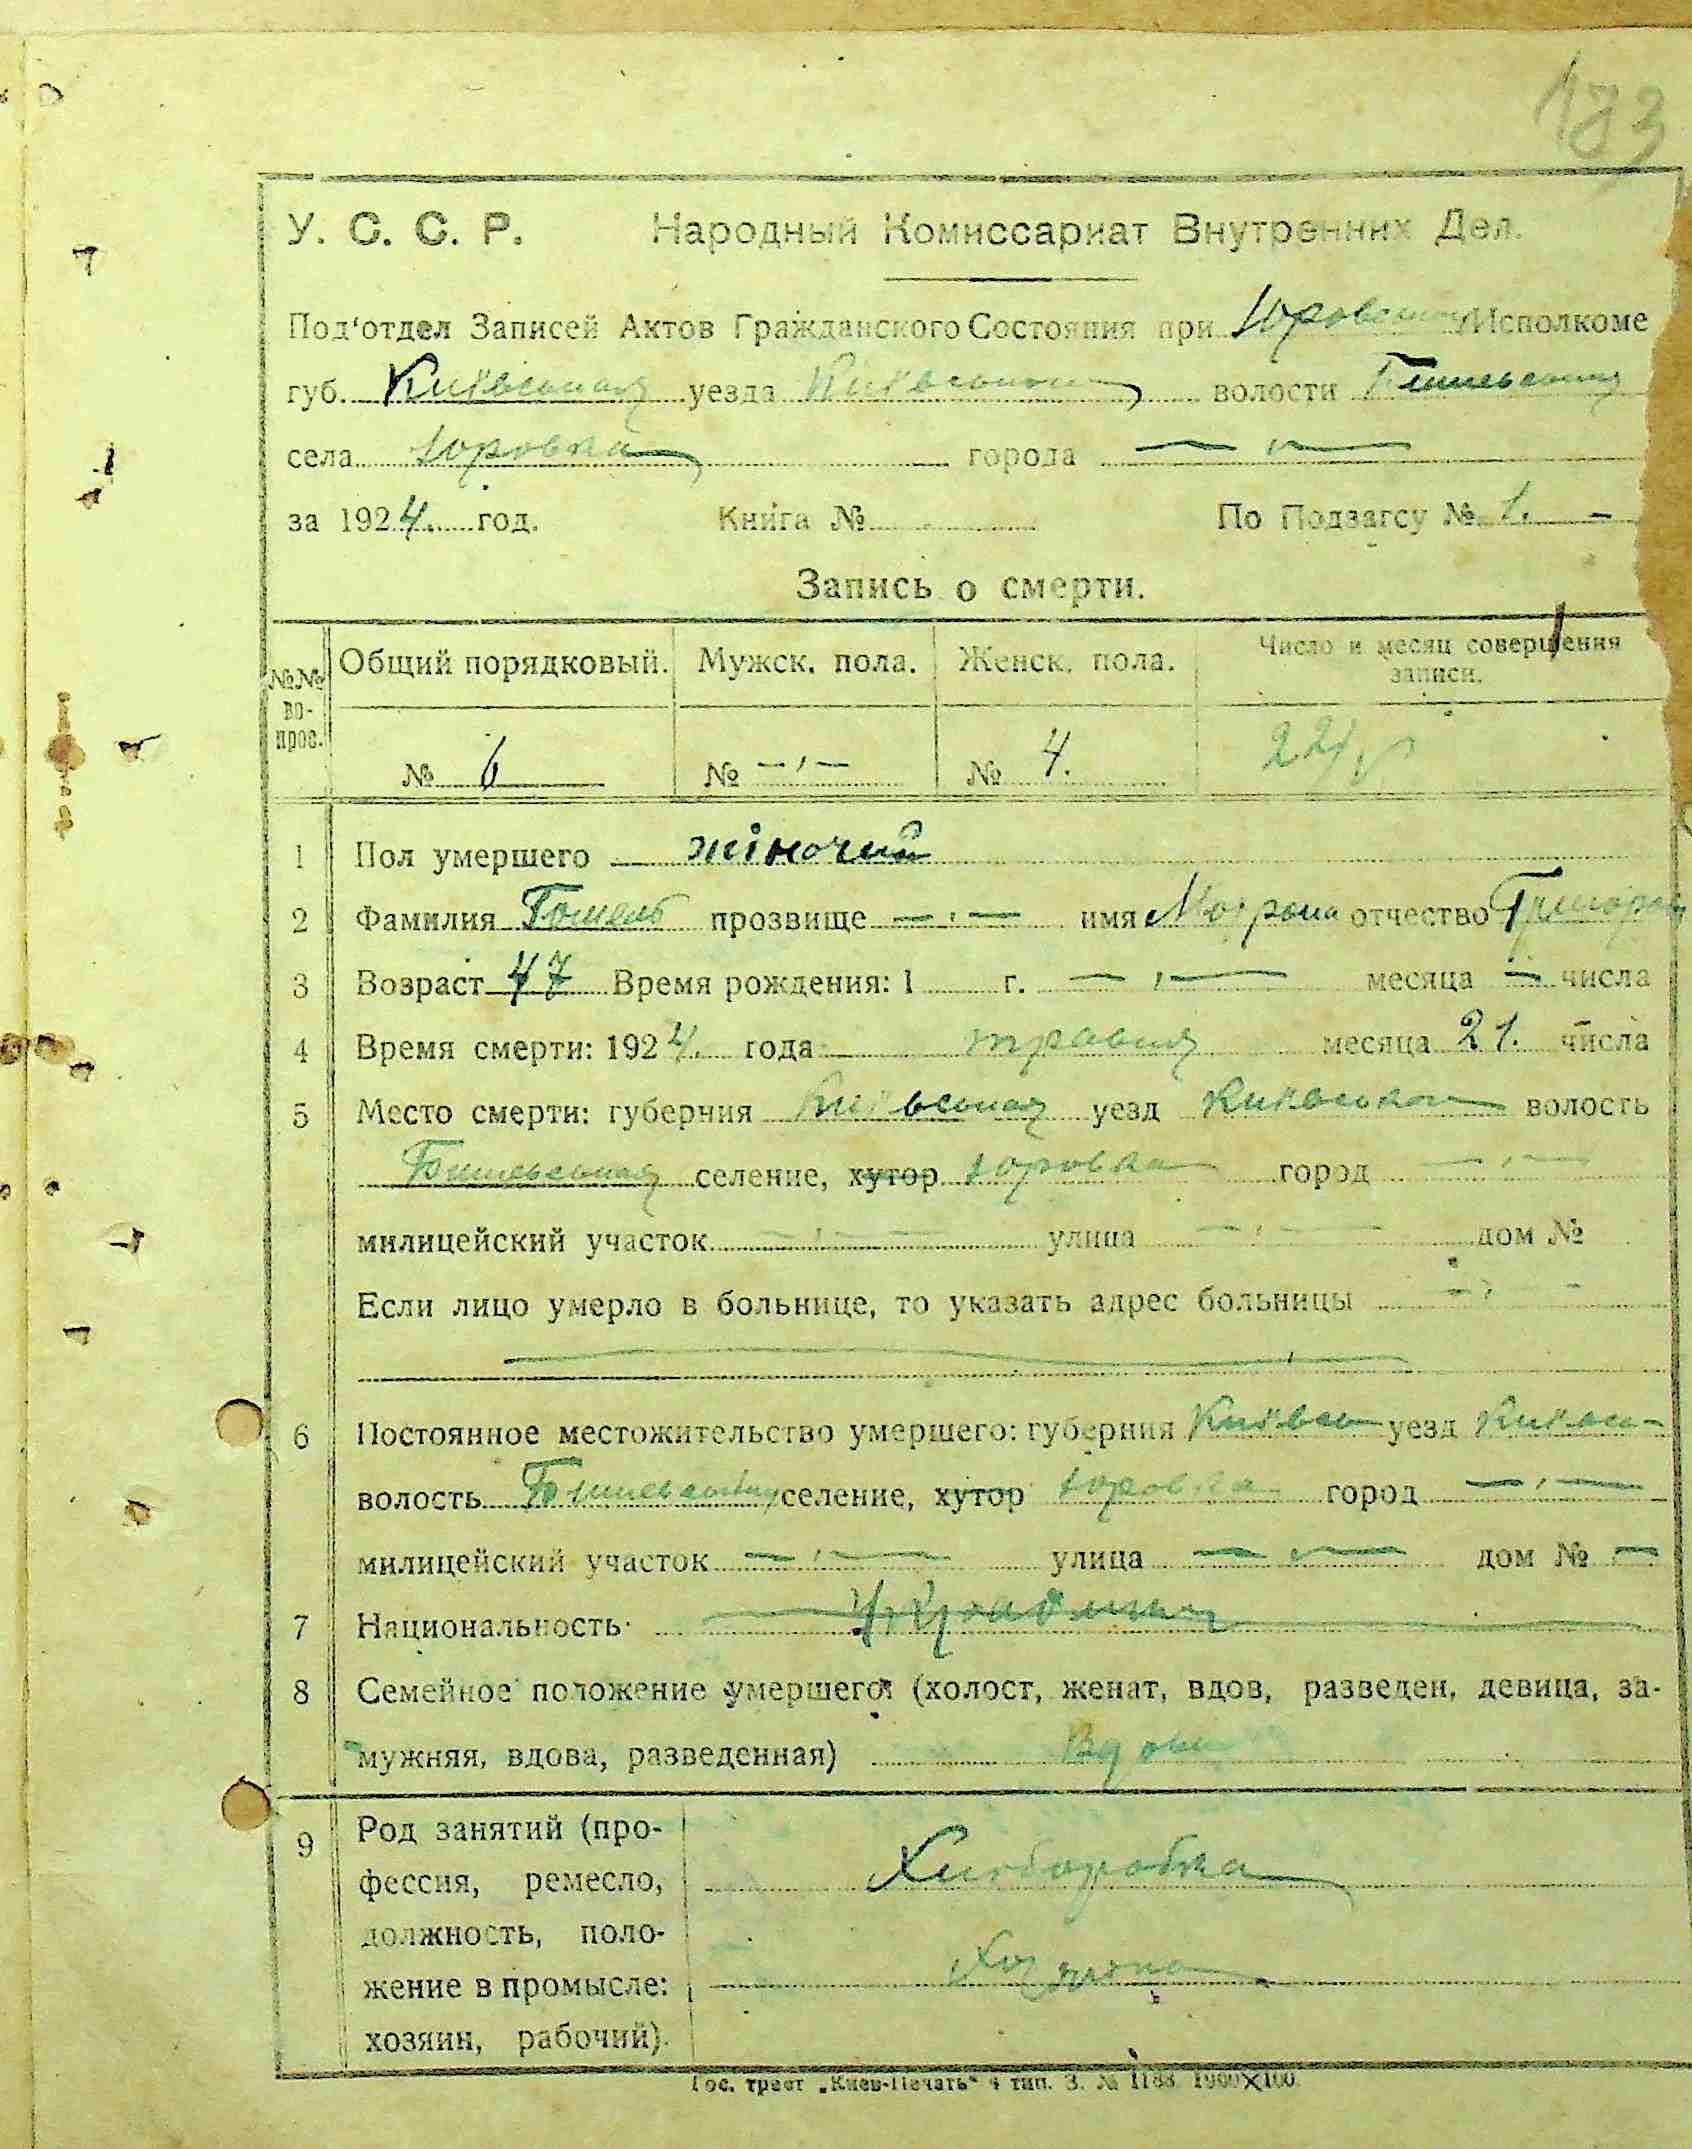 183
У. С. С. Р. Народный Комиссариат Внутренних Дел.
Под'отдел Записей Актов Гражданского Состояния при Юровськом Исполкоме
губ. Київьская уезда Київського волости Бишевьская
села Юровка города — „ —
за 1924. год. Книга № По Подзагсу № 1. –
Запись о смерти.
№№ во- прос. Общий порядковый. Мужск. пола. Женск. пола. Число и месяц совершения записи.
№ 6 № – „ – № 4. 22/V
1 Пол умершего жіночий
2 Фамилия прозвище — „ — имя Мотрона отчество Григоров
3 Возраст 47 Время рождения: 1 г. — „ — месяца — числа
4 Время смерти: 1924. года травня месяца 21. числа
5 Место смерти: губерния Київьская уезд Київського волость
Бишевьская селение, хутор Юровка город — „ —
милицейский участок — „ — улица — „ — дом №
Если лицо умерло в больнице, то указать адрес больницы – „ –
6 Постоянное местожительство умершего: губерния Київсь уезд Київсь-
волость Бишевьская селение, хутор Юровка город — „ —
милицейский участок — „ — улица — „ — дом № —
7 Национальность
8 Семейное положение умершего (холост, женат, вдов, разведен, девица, за-
мужняя, вдова, разведенная) Вдова
9 Род занятий (про-
фессия, ремесло, Хліборобка
должность, поло-
жение в промысле:
хозяин, рабочий).
Гос. трест „Киев-Печать" 4 тип. З. № 1188. 1000×100.